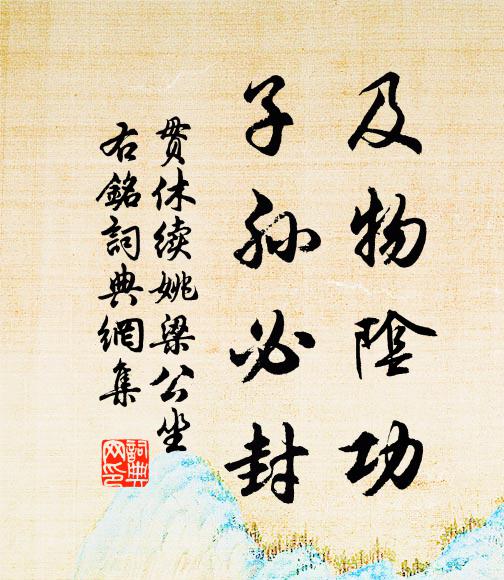 及物陰功
子孫必封
貫休续姚梁公坐
右銘詞典網集
詞典
网印